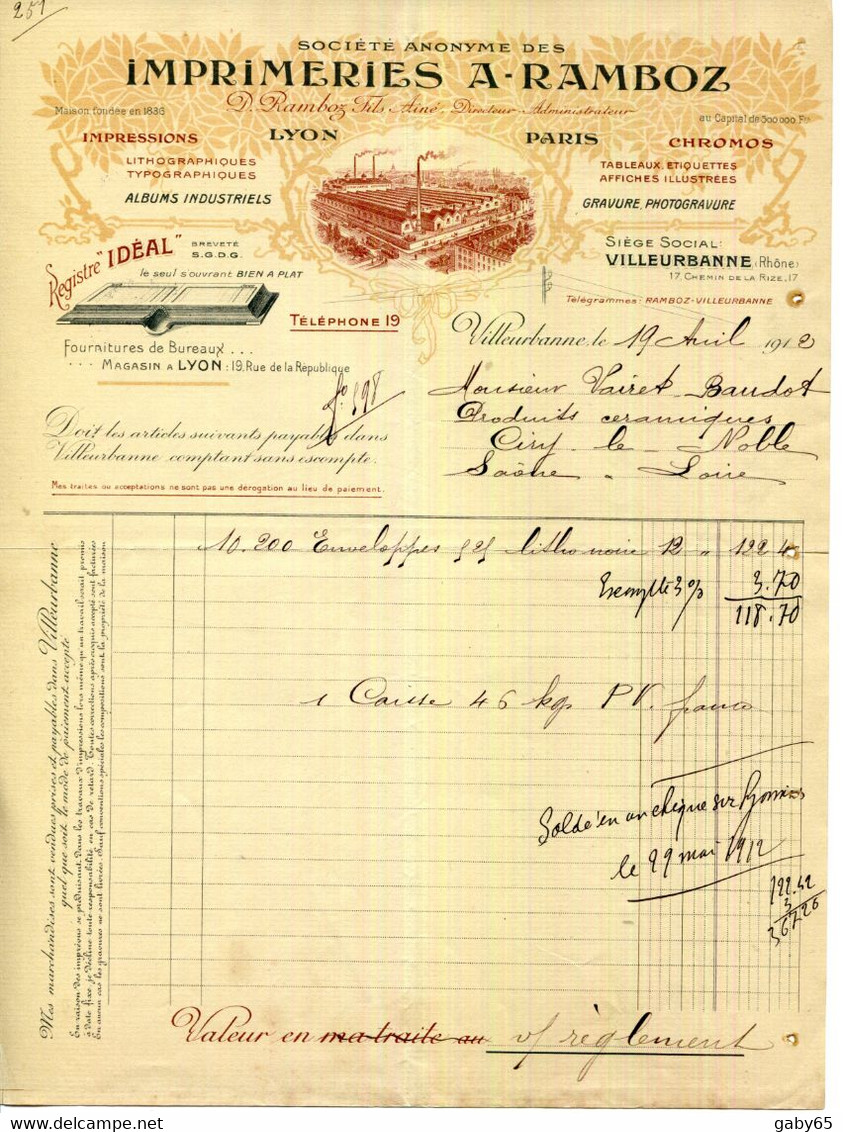 251
SOCIÉTÉ ANONYME DES
IMPRIMERIES A-RAMBOZ
D. Ramboz Fils Aîné, Directeur-Administrateur
Maison fondée en 1836
au Capital de 500 000 Frs
LYON
PARIS
IMPRESSIONS
LITHOGRAPHIQUES
TYPOGRAPHIQUES
ALBUMS INDUSTRIELS
CHROMOS
TABLEAUX, ETIQUETTES
AFFICHES ILLUSTRÉES
GRAVURE, PHOTOGRAVURE
Registre "IDÉAL"
BREVETÉ
S.G.D.G.
le seul s'ouvrant BIEN A PLAT
SIÈGE SOCIAL:
VILLEURBANNE (Rhône)
17, CHEMIN DE LA RIZE, 17
Télégrammes: RAMBOZ-VILLEURBANNE
TÉLÉPHONE 19
Fournitures de Bureaux ...
... MAGASIN A LYON : 19, Rue de la République
Villeurbanne, le 19 Avril 1912
fo. 398
Monsieur Vairet-Baudot
Produits ceramiques
Ciry-le-Noble
Saône-Loire
Doit les articles suivants payables dans
Villeurbanne comptant sans escompte.
Mes traites ou acceptations ne sont pas une dérogation au lieu de paiement.
10.200 Enveloppes 525 litho noire 12 " 122 4
Escompte 3 % 3.70
118.70
1 Caisse 46 kgs P.V. franco
Soldé en un chèque sur
le 29 mai 1912
122.42
3
367.26
Mes marchandises sont vendues prises et payables dans Villeurbanne
quel que soit le mode de paiement accepté
En raison des imprévus se produisant dans les travaux d'impressions lors même qu'un travail serait promis
à date fixe je décline toute responsabilité en cas de retard. Toutes corrections après croquis accepté sont facturées
En aucun cas les gravures ne sont livrées. Sauf conventions spéciales les compositions sont la propriété de la maison
Valeur en ma traite au v/ règlement
gaby65